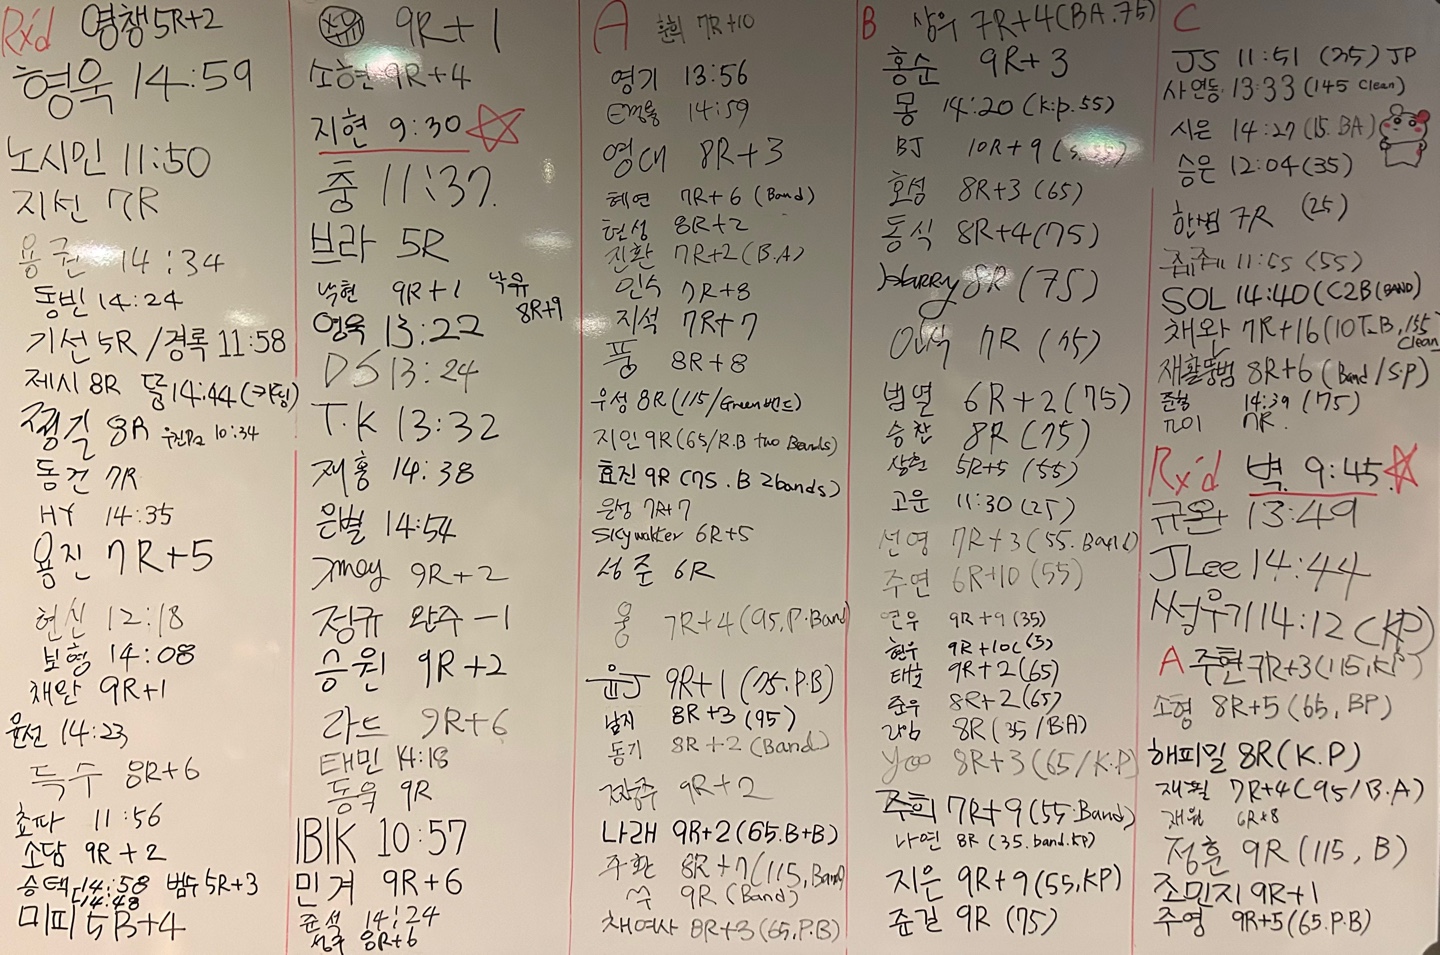 Rx'd 영챙 5R+2
형욱 14:59
노시민 11:50
지선 7R
용권 14:34
동빈 14:24
기선 5R / 경록 11:58
제시 8R 똘 14:44
8R 10:34
동건 7R
HY 14:35
용진 7R+5
현신 12:18
보형 14:08
채완 9R+1
윤선 14:23
득수 8R+6
쵸파 11:56
소담 9R+2
승택 14:58 범수 5R+3
14:48
미피 5R+4
9R+1
소현 9R+4
지현 9:30
충 11:37
브라 5R
낙현 9R+1 낙유 8R+9
영욱 13:22
DS 13:24
T.K 13:32
재홍 14:38
은별 14:54
9R+2
정규 완주 -1
승원 9R+2
라드 9R+6
태민 14:18
동욱 9R
IBIK 10:57
민겨 9R+6
준석 14:24
성구 8R+6
A 훈희 7R+10
영기 13:56
14:59
영대 8R+3
혜연 7R+6 (Band)
현성 8R+2
진환 7R+2 (B.A)
인수 7R+8
지석 7R+7
풍 8R+8
우성 8R (115/Green밴드)
지인 9R (65/R.B two Bands)
효진 9R (75.B 2bands)
은성 7R+7
Skywalker 6R+5
성준 6R
웅 7R+4 (95.P.Band)
윤J 9R+1 (75.P.B)
남지 8R+3 (95)
동기 8R+2 (Band)
9R+2
나래 9R+2 (65.B+B)
주환 8R+7 (115, Band)
쓔 9R (Band)
채여사 8R+3 (65.P.B)
B 상우 7R+4 (BA.75)
홍순 9R+3
몽 14:20 (K.p.55)
BJ 10R+9
호성 8R+3 (65)
동식 8R+4 (75)
Harry 8R (75)
인식 7R (75)
범열 6R+2 (75)
승찬 8R (75)
상헌 5R+5 (55)
고운 11:30 (25)
선영 7R+3 (55.Band)
주연 6R+10 (55)
연우 9R+9 (35)
현우 9R+10
태호 9R+2 (65)
준우 8R+2 (65)
8R (35/BA)
Yoo 8R+3 (65/K.P)
주희 7R+9 (55.Band)
나연 8R (35.band.KP)
지은 9R+9 (55,KP)
준걸 9R (75)
C
JS 11:51 (35) JP
사연동 13:33 (145 clean)
시은 14:27 (15.BA)
승은 12:04 (35)
한범 7R (25)
쥬쥬 11:55 (55)
SOL 14:40 (C2B (BAND)
채완 7R+16 (10T-B, 135 clean)
재활뚱범 8R+6 (Band/S.P)
준형 14:39 (75)
7R
Rx'd 벽 9:45
규완 13:49
JLee 14:44
써우기 14:12 (KP)
A 주현 7R+3 (115,KP)
소형 8R+5 (65, BP)
해피밀 8R (K.P)
재필 7R+4 (95/B.A)
재원 6R+8
정훈 9R (115, B)
조민지 9R+1
주영 9R+5 (65.P.B)